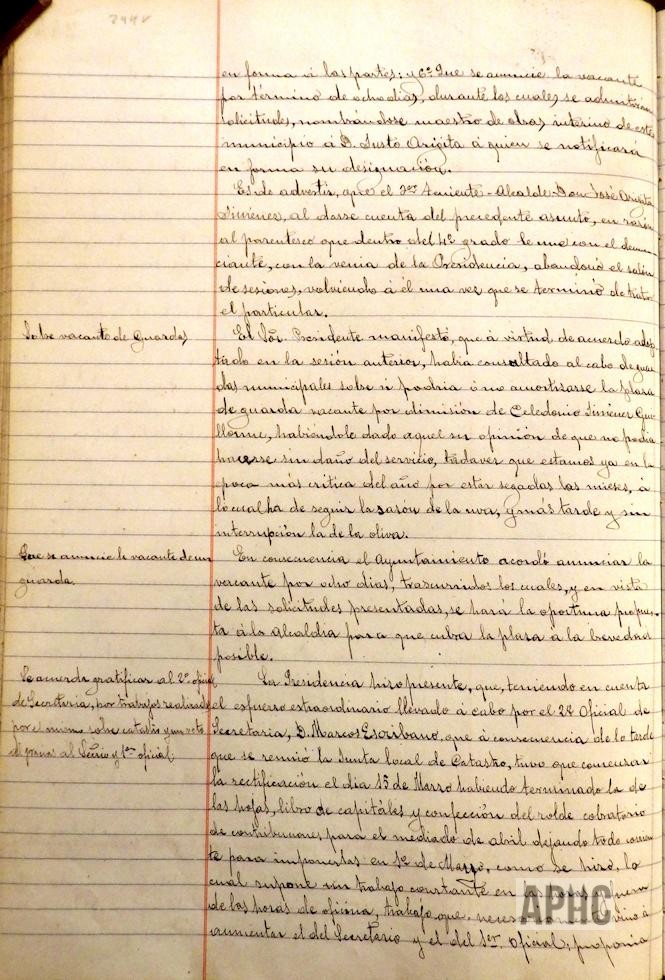 244v
en forma á las partes; y 6º Que se anuncie la vacante
por término de ocho dias, durante los cuales se admitirán
solicitudes, nombrándose maestro de obras interino de este
municipio á D. Justo Arigita á quien se notificará
en forma su designación.
Es de advertir, que el 3er Teniente-Alcalde Don José Arigita
Jimenez, al darse cuenta del precedente asunto, en razón
al parentesco que dentro del 4º grado le une con el denun
ciante, con la venia de la Presidencia, abandonó el salón
de sesiones, volviendo á él una vez que se terminó de tratar
el particular.
Sobre vacante de Guardas
El Sor. Presidente manifestó, que á virtud de acuerdo adop
tado en la sesión anterior, habia consultado al cabo de guar
das municipales sobre si podria ó no amortizarse la plaza
de guarda vacante por dimisión de Celedonio Jimenez Gui
llorme, habiéndole dado aquel su opinión de que no podia
hacerse sin daño del servicio, toda vez que estamos ya en la
epoca más critica del año por estar segadas las mieses, á
lo cual ha de seguir la sazón de la uva, y más tarde y sin
interrupción la de la oliva.
Que se anuncie la vacante de un
guarda.
En consecuencia el Ayuntamiento acordó anunciar la
vacante por ocho dias, trascurridos los cuales, y en vista
de las solicitudes presentadas, se hará la oportuna propues
ta á la Alcaldia para que cubra la plaza á la brevedad
posible.
Se acuerda gratificar al 2º oficial
de Secretaria, por trabajos realizados
por el mismo sobre catastro y un voto
de gracias al Srio y 1er oficial
La Presidencia hizo presente, que, teniendo en cuenta
el esfuerzo extraordinario llevado á cabo por el 2º Oficial de
Secretaria, D. Marcos Escribano, que á consecuencia de lo tarde
que se reunió la Junta local de Catastro, tuvo que comenzar
la rectificación el dia 15 de Marzo habiendo terminado la de
las hojas, libro de capitales y confección del rolde cobratorio
de contribuciones, para el mediado de abril dejando todo corrien
te para imponerlas en 1º de Mayo, como se hizo, lo
cual supone un trabajo constante en las horas y fuera
de las horas de oficina, trabajo que, vino á
aumentar el del Secretario y el del 1er. Oficial; proponia
APHC